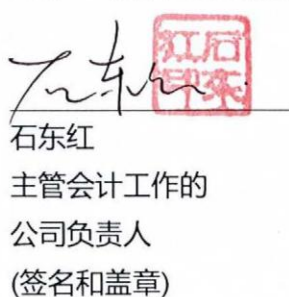 石东红
石东红印
石东红
主管会计工作的
公司负责人
(签名和盖章)